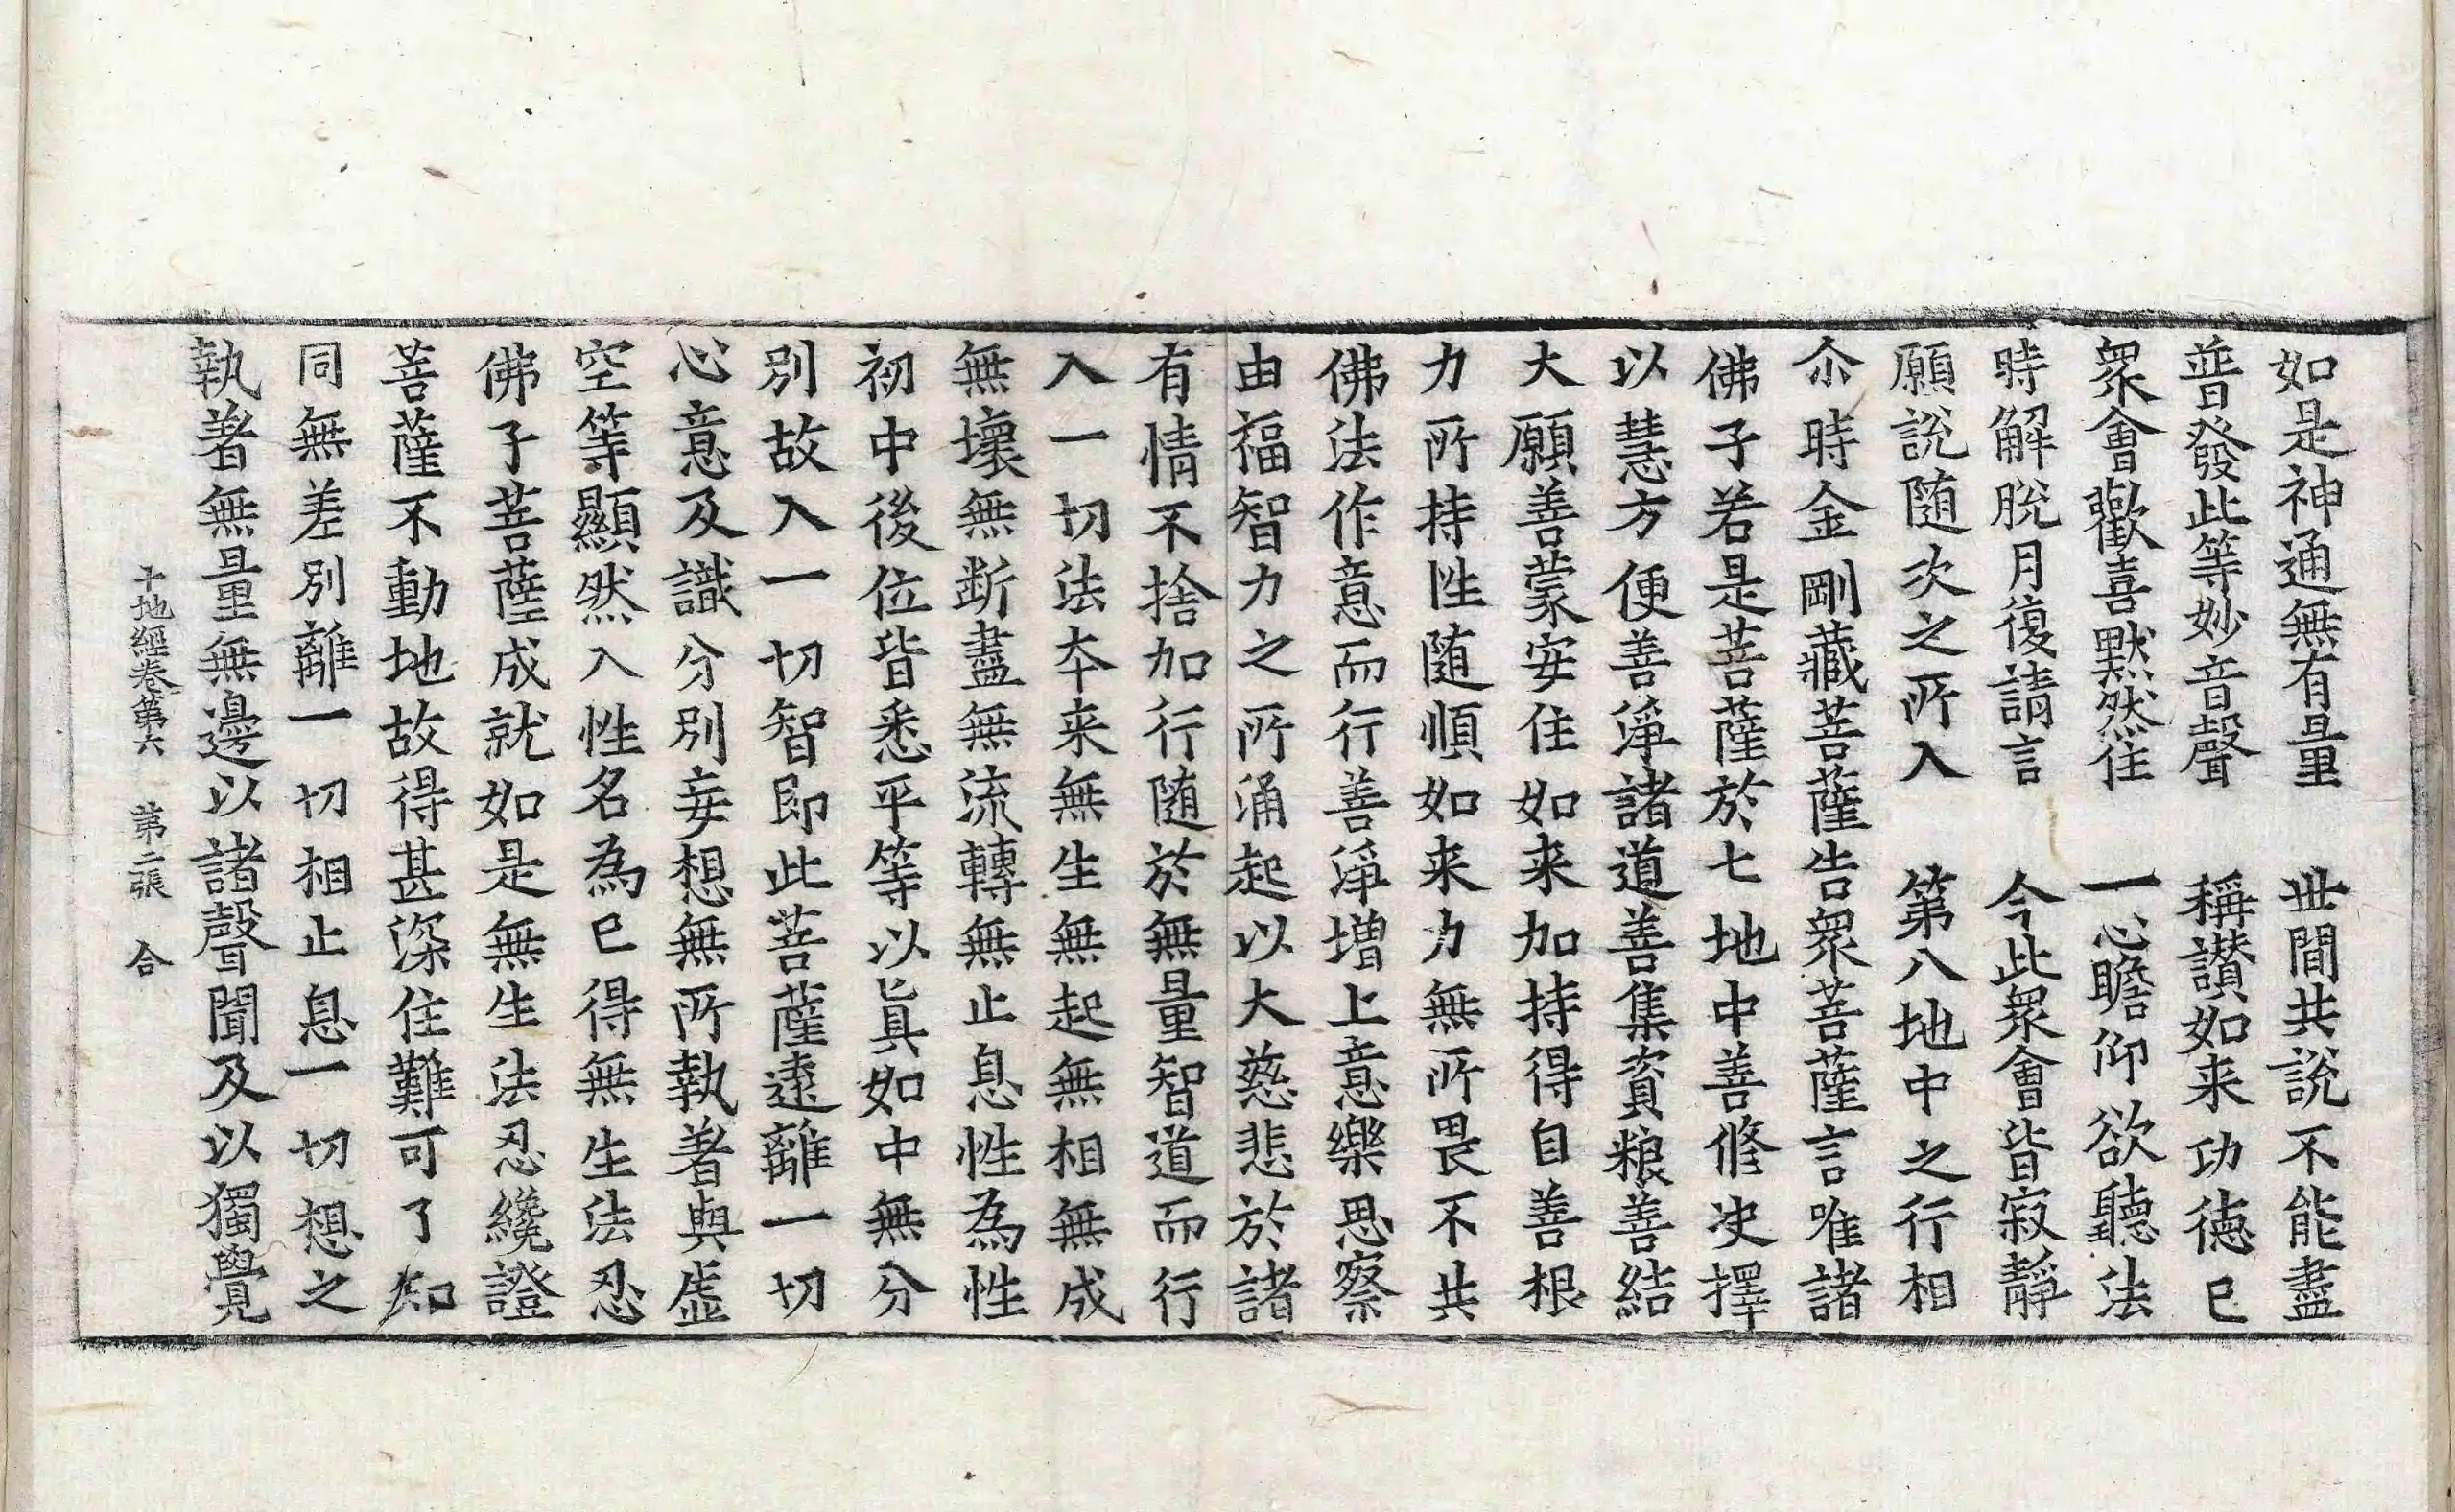 如是神通無有量　世間共說不能盡
普發此等妙音聲　稱讃如来功德已
衆會歡喜默然住　一心瞻仰欲聽法
時解脫月復請言　今此衆會皆寂靜
願說随次之所入　第八地中之行相
尒時金剛藏菩薩告衆菩薩言唯諸
佛子若是菩薩於七地中善修决擇
以慧方便善淨諸道善集資粮善結
大願善蒙安住如来加持得自善根
力所持性随順如来力無所畏不共
佛法作意而行善淨增上意樂思察
由福智力之所涌起以大慈悲於諸
有情不捨加行随於無量智道而行
入一切法本来無生無起無相無成
無壞無断盡無流轉無止息性為性
初中後位皆悉平等以真如中無分
別故入一切智即此菩薩遠離一切
心意及識分別妄想無所執著與虛
空等顯然入性名為已得無生法忍
佛子菩薩成就如是無生法忍纔證
菩薩不動地故得甚深住難可了知
同無差別離一切相止息一切想之
執著無量無邊以諸聲聞及以獨覺
十地經卷第六　第二張　合